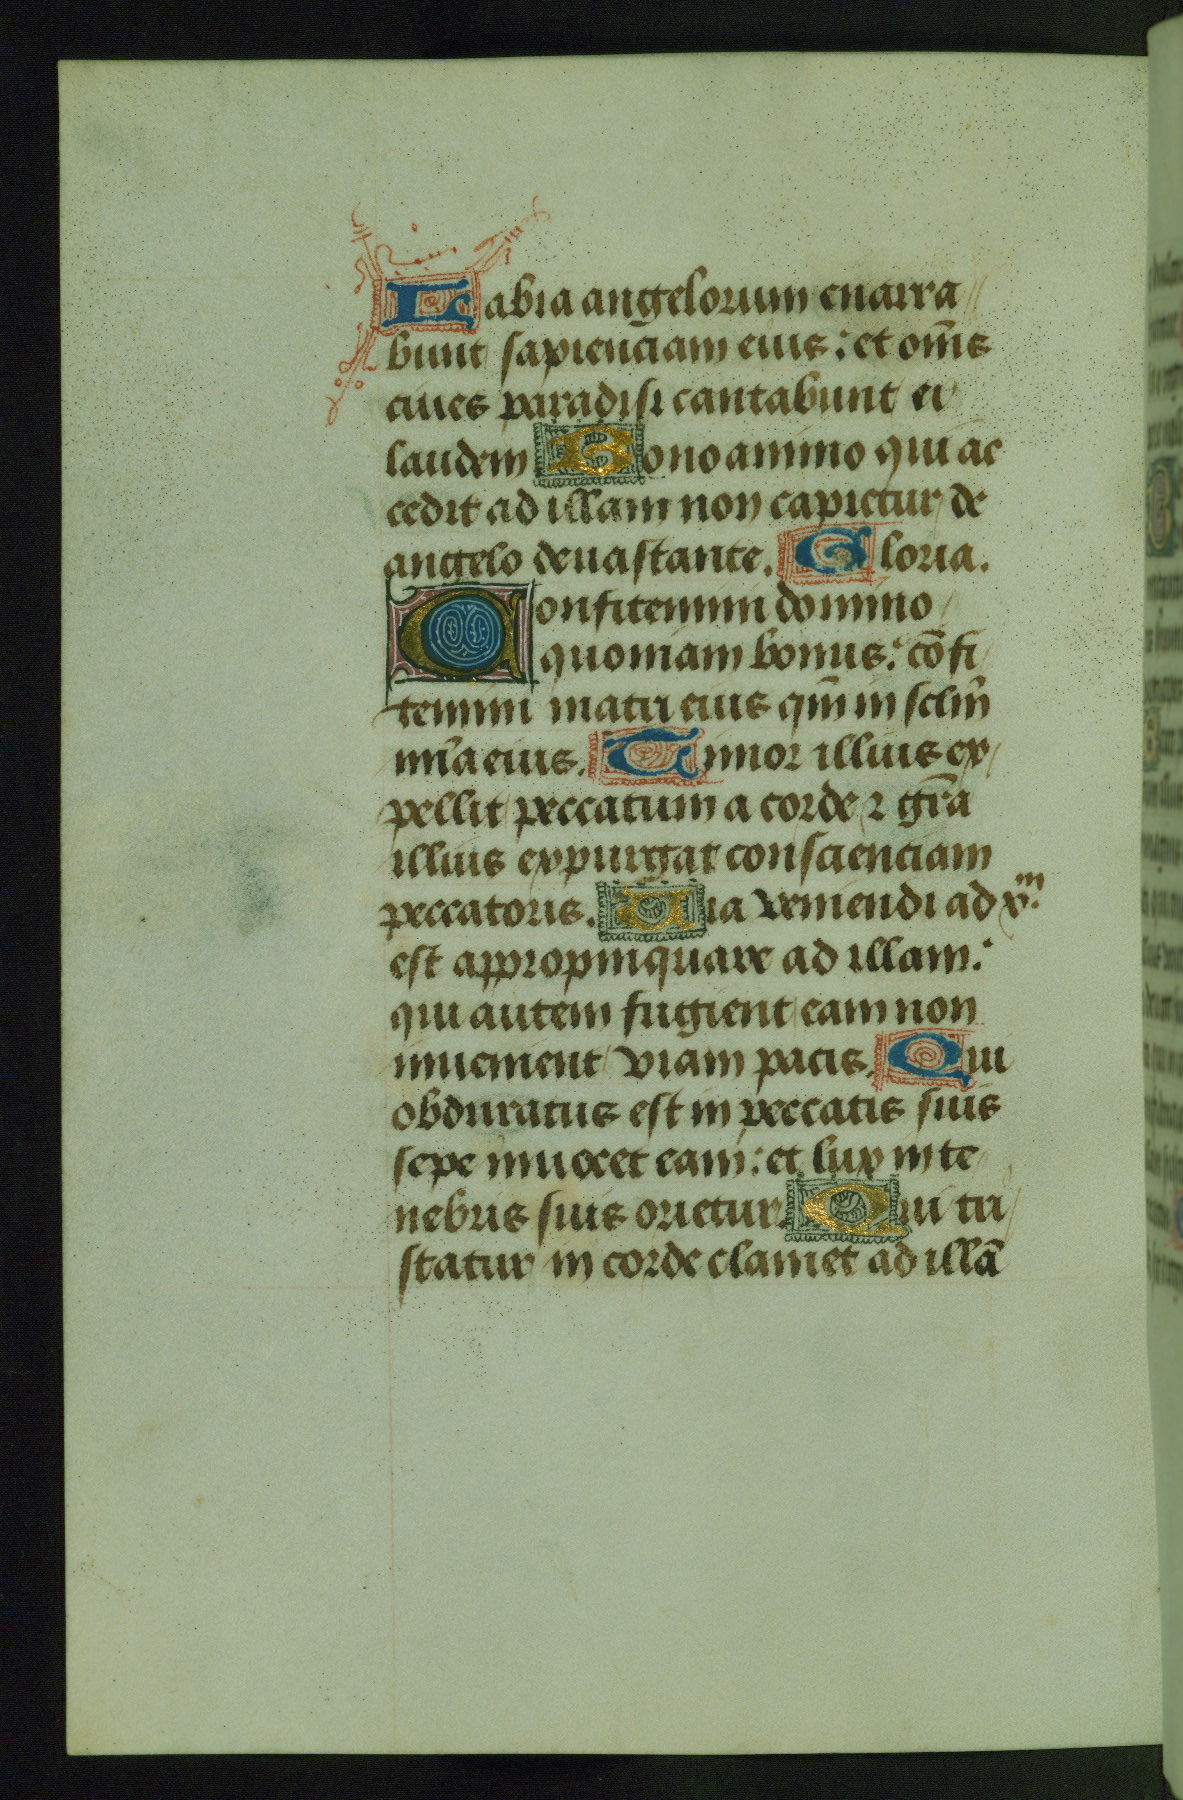 Labia angelorum enarra
bunt sapienciam eius: et om̄s
ciues paradisi cantabunt ei
laudem Bono animo qui ac
cedit ad illam non capietur de
angelo deuastante. Gloria.
Confitemini domino
quoniam bonus: cōfi
temini matri eius qm̄ in sclm̄
mīa eius. Timor illius ex
pellit peccatum a corde ⁊ gr̄a
illius expurgat conscienciam
peccatoris. Via veniendi ad xᵐ.
est appropinquare ad illam:
qui autem fugient eam non
inuenient viam pacis. Qui
obduratus est in peccatis suis
sepe inuocet eam: et lux in te
nebris suis orietur. Qui tri
statur in corde clamet ad illā